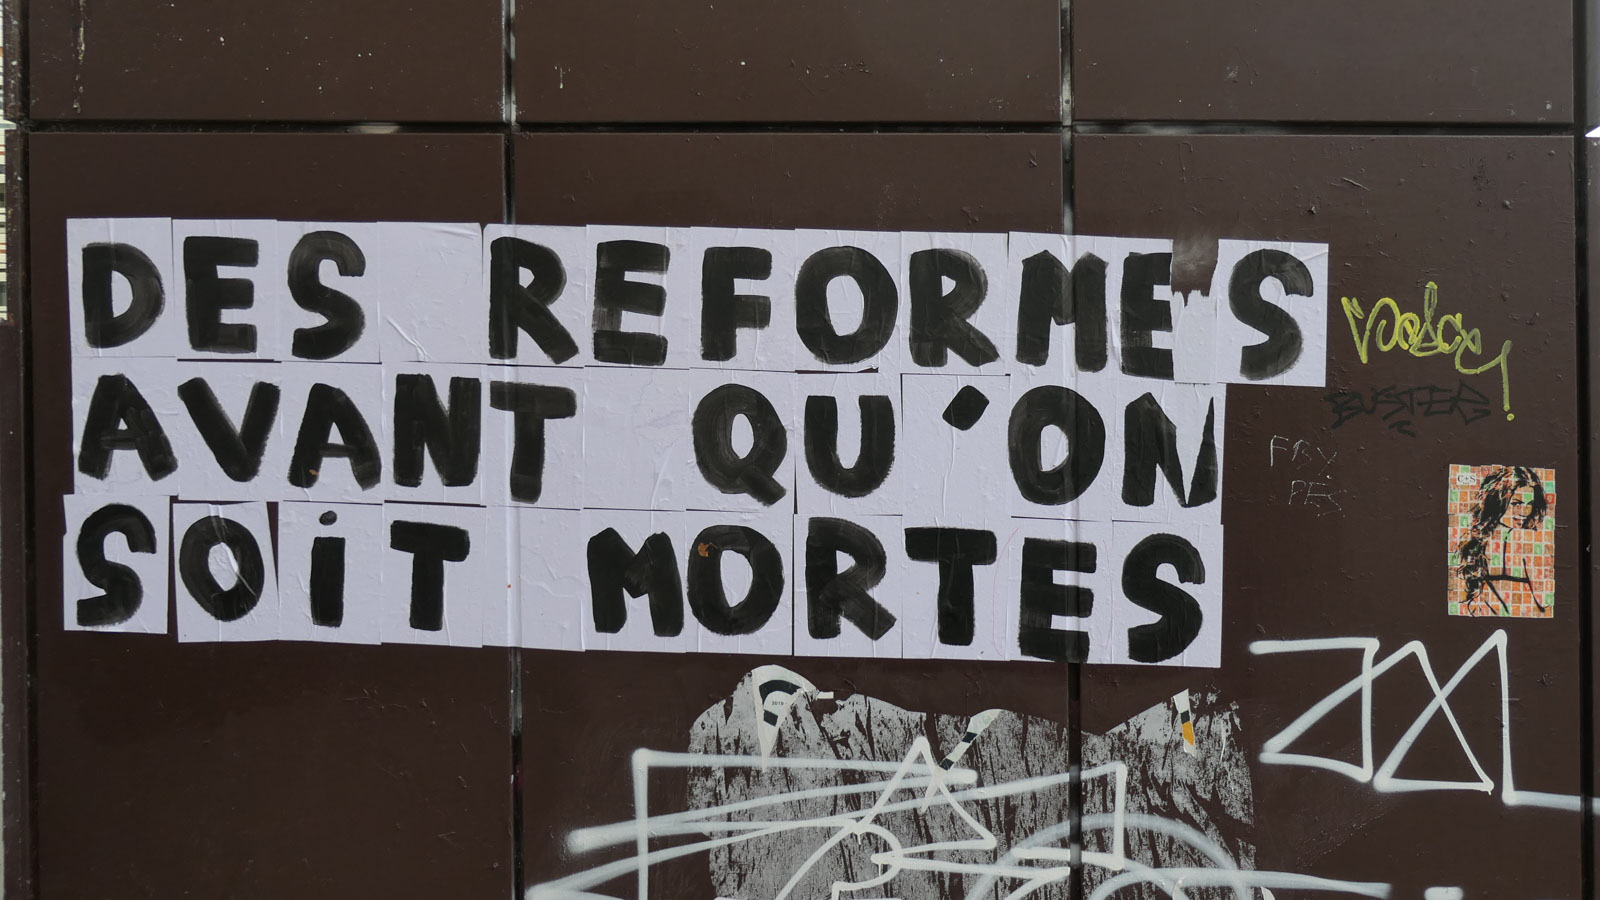 DES REFORMES
AVANT QU'ON
SOiT MORTES
BUSTER
FRY
PES